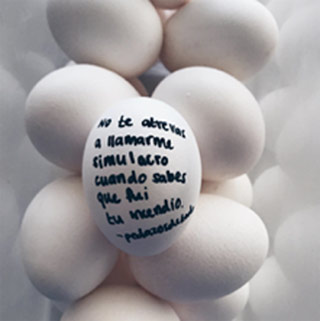 No te atrevas
a llamarme
simulacro
cuando sabes
que fui
tu incendio.